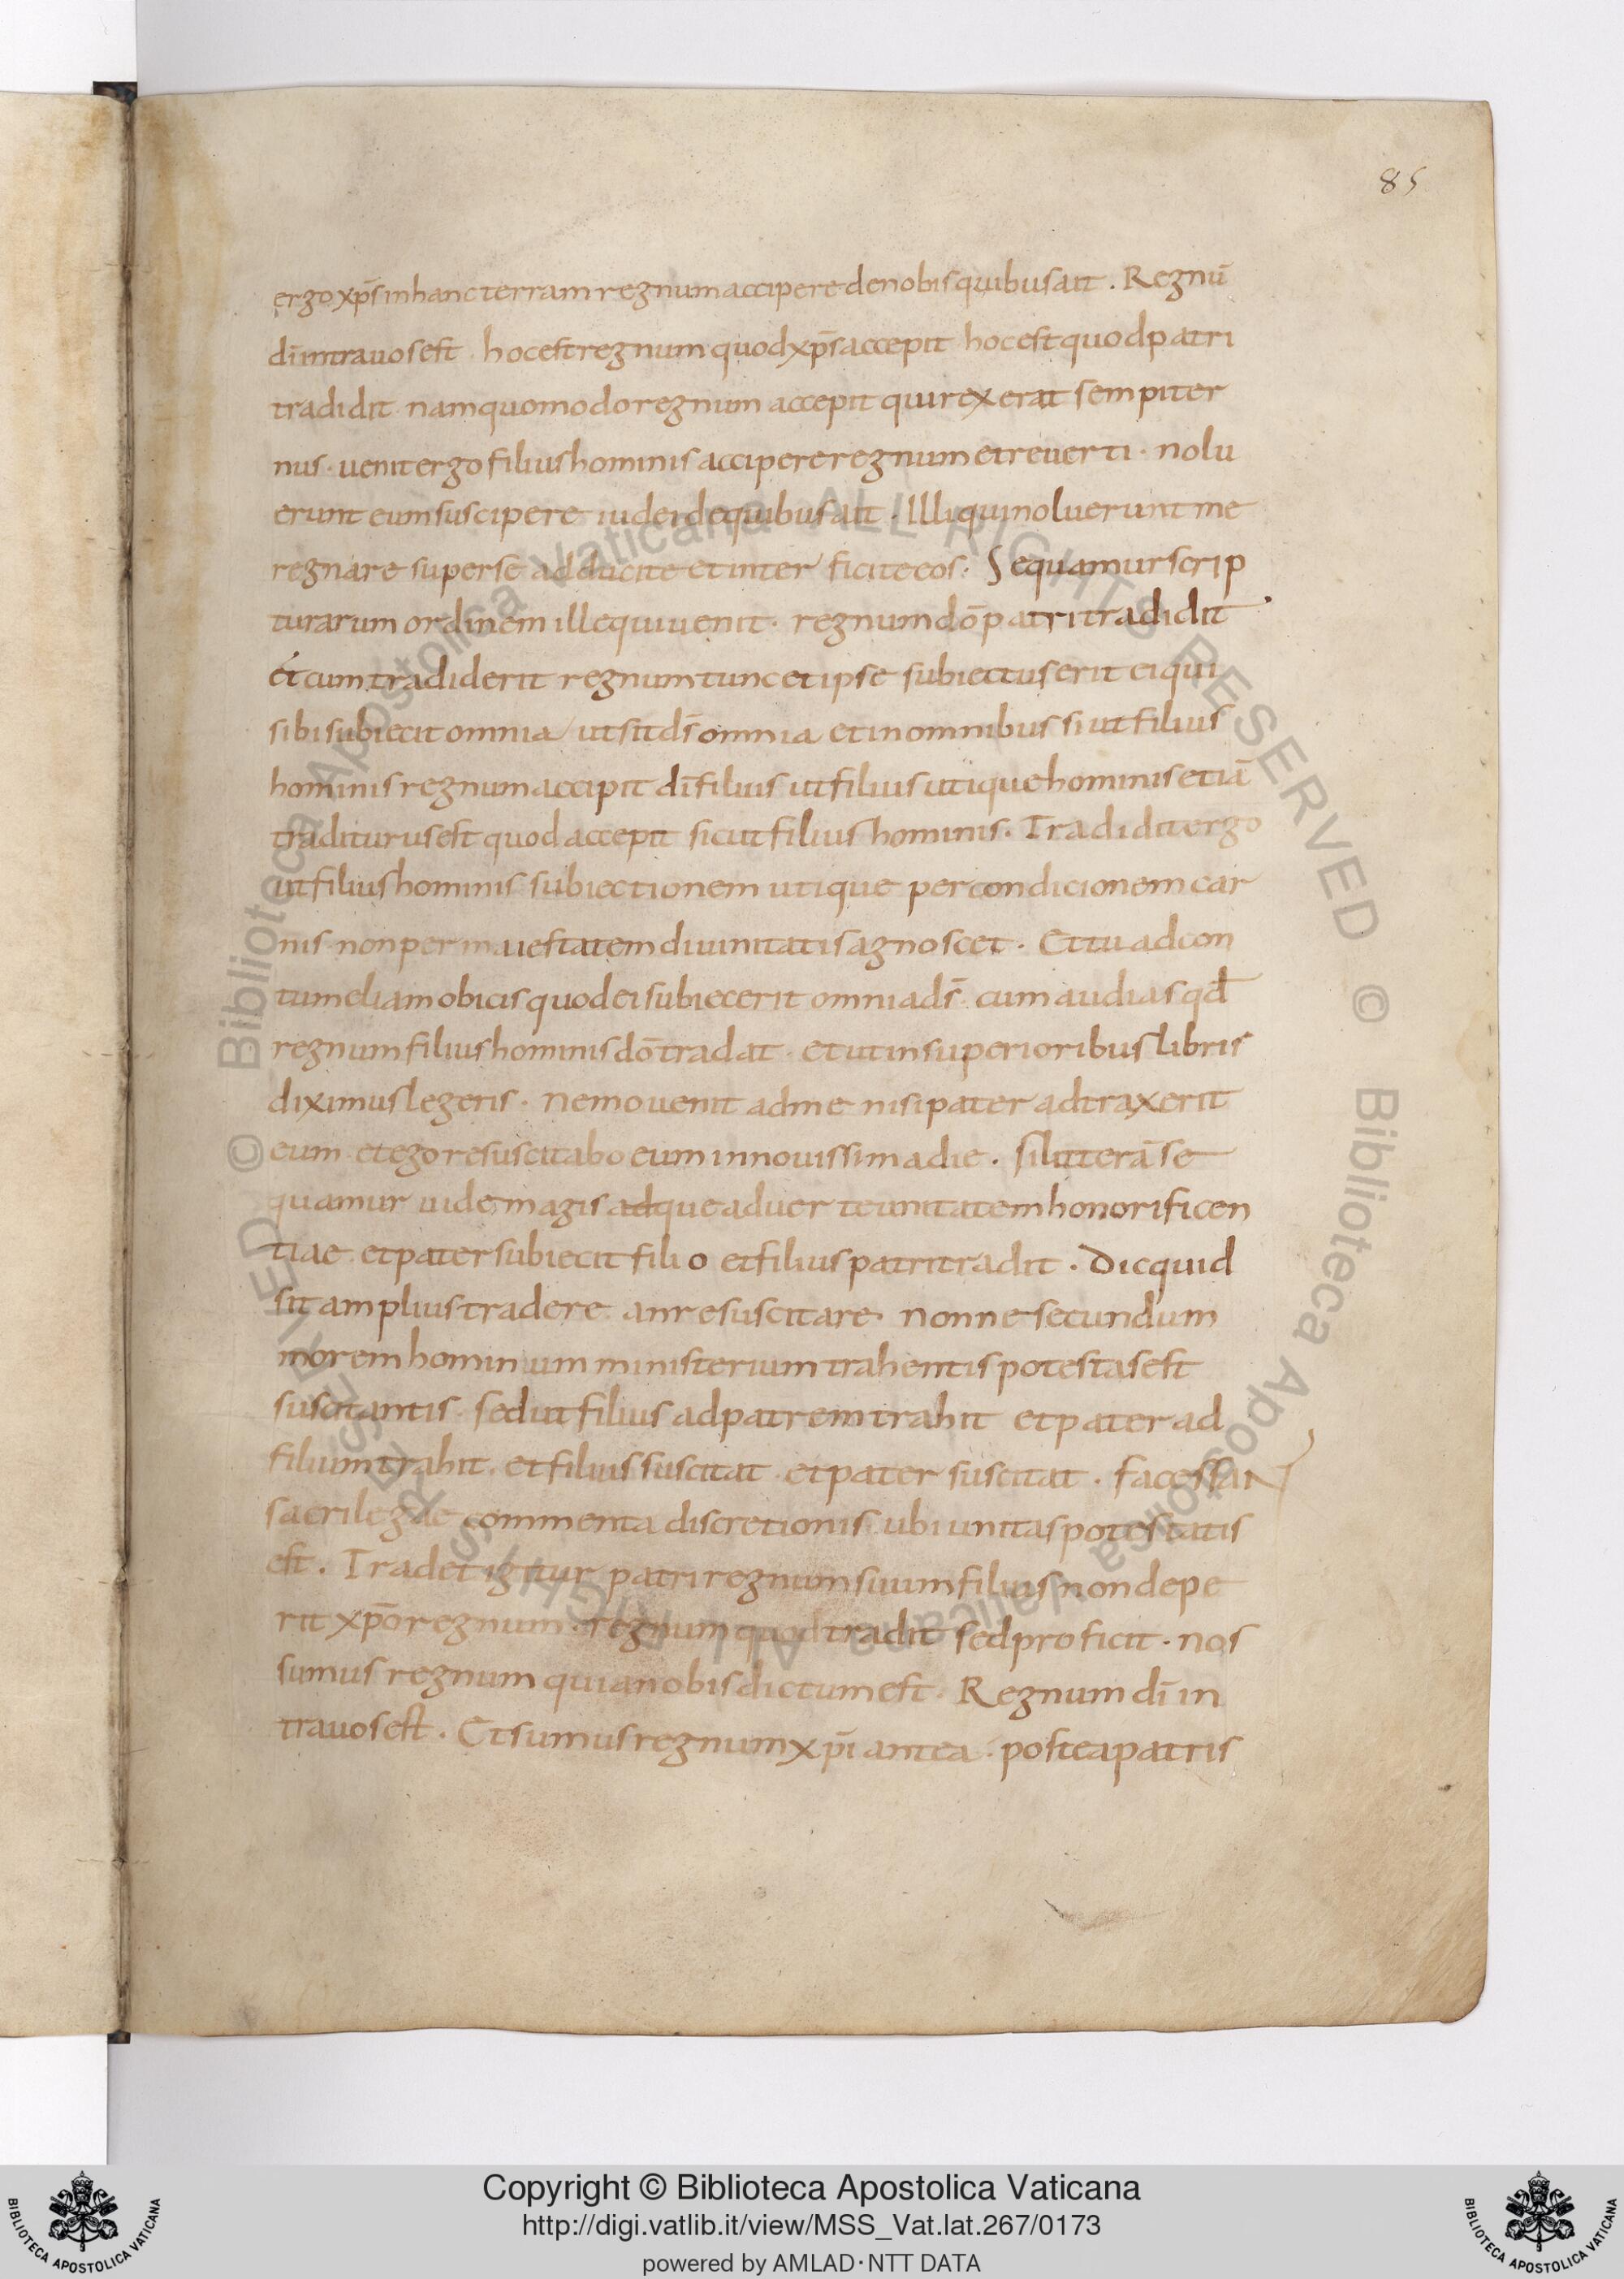 85
ergo xp̄s in hanc terram regnum accipere de nobis quibus ait . Regnū
dī intra uos est . hoc est regnum quod xp̄s accepit hoc est quod patri
tradidit . nam quomodo regnum accepit qui rex erat sempiter
nus . uenit ergo filius hominis accipere regnum et reuerti . nolu
erunt eum suscipere iudei de quibus ait . Illi qui noluerunt me
regnare super se adducite et interficite eos . Sequamur scrip
turarum ordinem ille qui uenit . regnum dō patri tradidit .
et cum tradiderit regnum tunc et ipse subiectus erit ei qui
sibi subiecit omnia / ut sit ds̄ omnia et in omnibus si ut filius
hominis regnum accipit dī filius ut filius utique hominis etiā
traditurus est quod accepit sicut filius hominis . Tradidit ergo
ut filius hominis subiectionem utique per condicionem car
nis non per maiestatem diuinitatis agnoscet . Et tu ad con
tumeliam obicis quod ei subiecerit omnia ds̄ . cum audias qđ
regnum filius hominis dō tradat . et ut in superioribus libris
diximus legeris . nemo uenit ad me nisi pater adtraxerit
eum . et ego resuscitabo eum in nouissima die . si litterā se
quamur uide magis adque aduerte unitatem honorificen
tiae . et pater subiecit filio et filius patri tradit . Dic quid
sit amplius tradere an resuscitare . nonne secundum
morem hominum ministerium trahentis potestas est
suscitantis . sed ut filius ad patrem trahit et pater ad
filium trahit . et filius suscitat . et pater suscitat . facessant
sacrilegae commenta discretionis ubi unitas potestatis
est . Tradet igitur patri regnum suum filius non depe
rit xp̄o regnum . regnum quod tradit sed proficit . nos
sumus regnum quia nobis dictum est . Regnum dī in
tra uos est . Et sumus regnum xp̄i antea . postea patris
© Biblioteca Apostolica Vaticana ALL RIGHTS RESERVED © Biblioteca Apostolica Vaticana ALL RIGHTS RESERVED
BIBLIOTECA APOSTOLICA VATICANA
Copyright © Biblioteca Apostolica Vaticana
http://digi.vatlib.it/view/MSS_Vat.lat.267/0173
powered by AMLAD·NTT DATA
BIBLIOTECA APOSTOLICA VATICANA